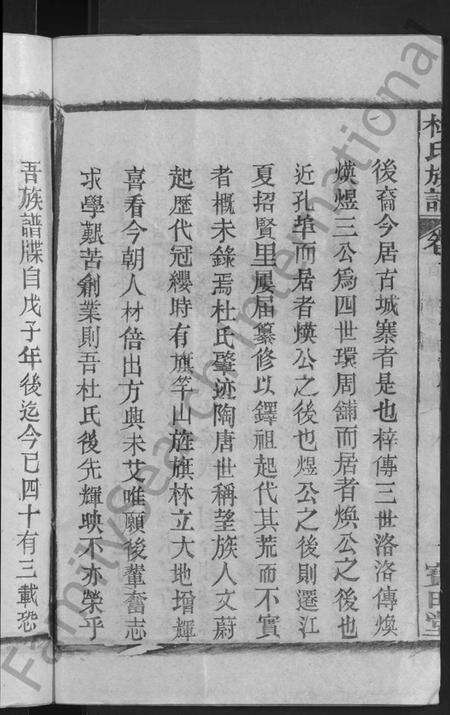 杜氏族譜 卷
寶田堂
後裔今居古城寨者是也梓傳三世洛洛傳煥
煐煜三公為四世環周舖而居者煥公之後也
近孔華而居者煐公之後也煜公之後則遷江
夏招賢里屢届纂修以鐸祖起代其荒而不實
者概未錄焉杜氏肇迹陶唐世稱望族人文蔚
起歷代冠纓時有旗竿山旌旗林立大地增輝
喜看今朝人材倍出方興未艾唯願後輩奮志
求學艱苦創業則吾杜氏後先輝映不亦榮乎
吾族譜牒自戊子年後迄今已四十有三載恐
Familysearch International